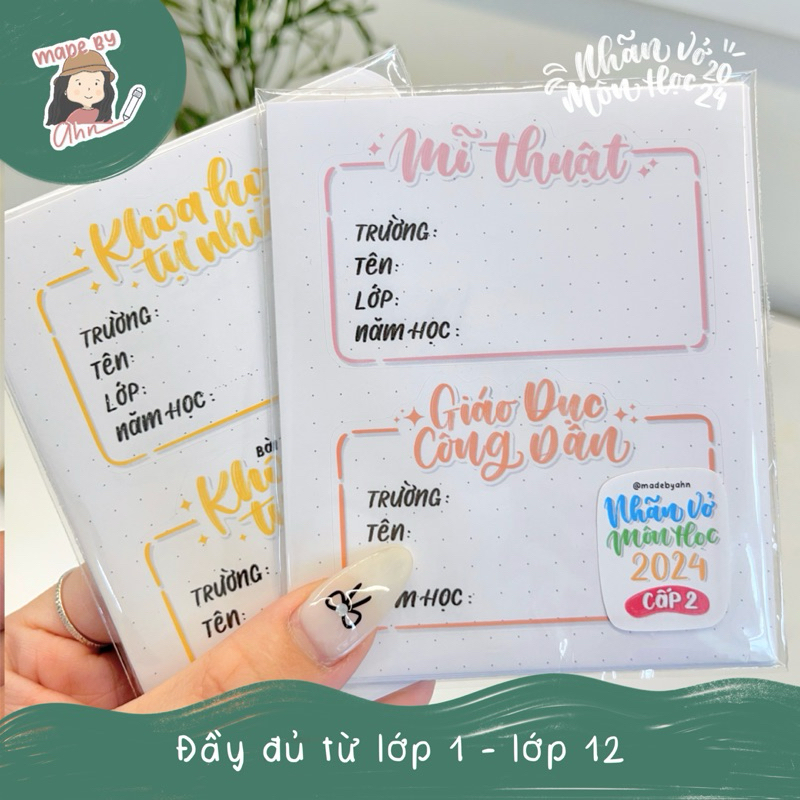 made By
ahn
Nhãn vở
Môn Học
2024
Khoa họ
tự nhi
TRƯỜNG:
Tên:
LỚP:
năm HỌC:
TRƯỜNG:
Tên:
Mĩ thuật
TRƯỜNG:
Tên:
LỚP:
năm HỌC:
Giáo Dục
Công Dân
TRƯỜNG:
Tên:
m HỌC:
@madebyahn
Nhãn vở
Môn Học
2024
CẤP 2
Đầy đủ từ lớp 1 - lớp 12